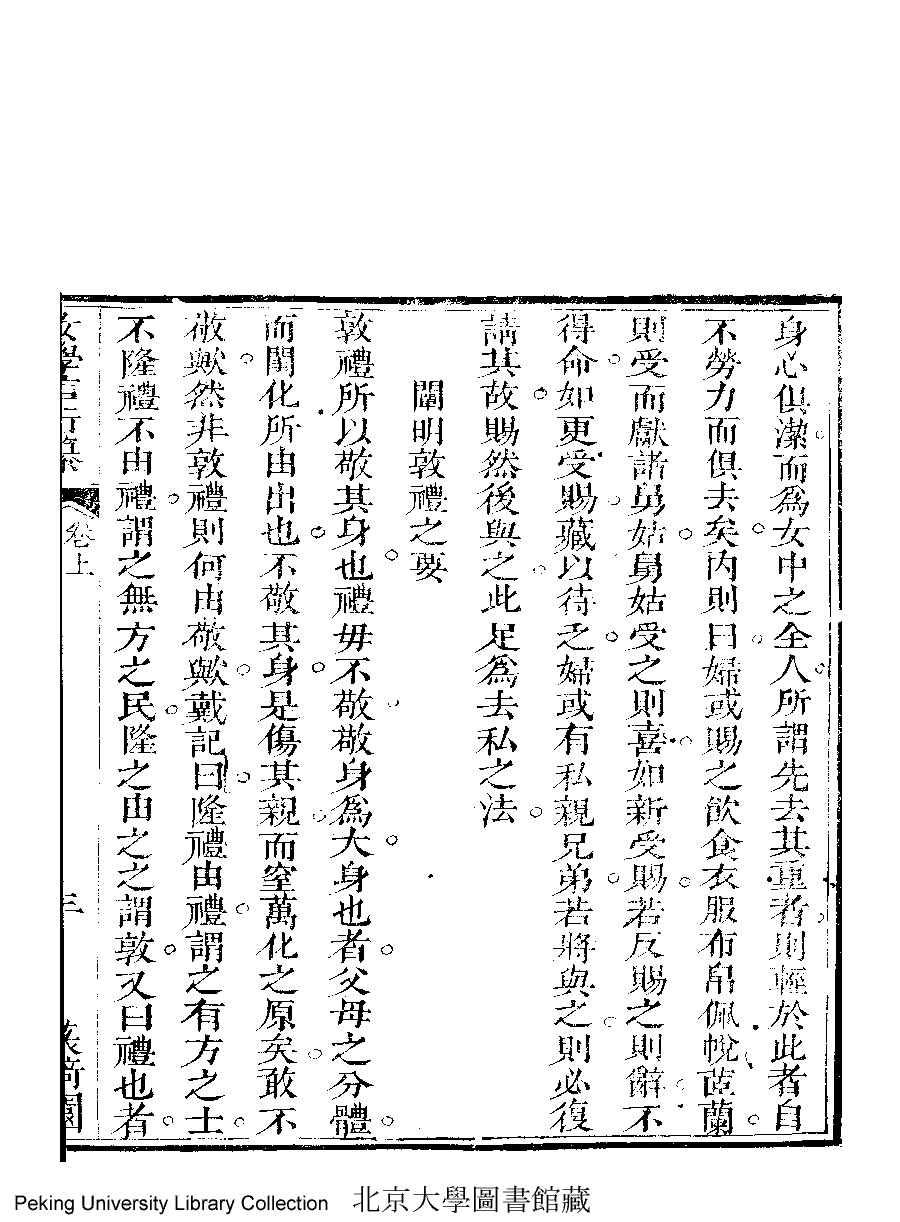 身心俱潔而為女中之全人所謂先去其重者則輕於此者自
不勞力而俱去矣內則曰婦或賜之飲食衣服布帛佩帨茝蘭
則受而獻諸舅姑舅姑受之則喜如新受賜若反賜之則辭不
得命如更受賜藏以待乏婦或有私親兄弟若將與之則必復
請其故賜然後與之此足為去私之法
闡明敦禮之要
敦禮所以敬其身也禮毋不敬敬身為大身也者父母之分體
而閫化所由出也不敬其身是傷其親而窒萬化之原矣敢不
敬歟然非敦禮則何由敬歟戴記曰隆禮由禮謂之有方之士
不隆禮不由禮謂之無方之民隆之由之之謂敦又曰禮也者
女學言行纂
卷上
三
Peking University Library Collection 北京大學圖書館藏